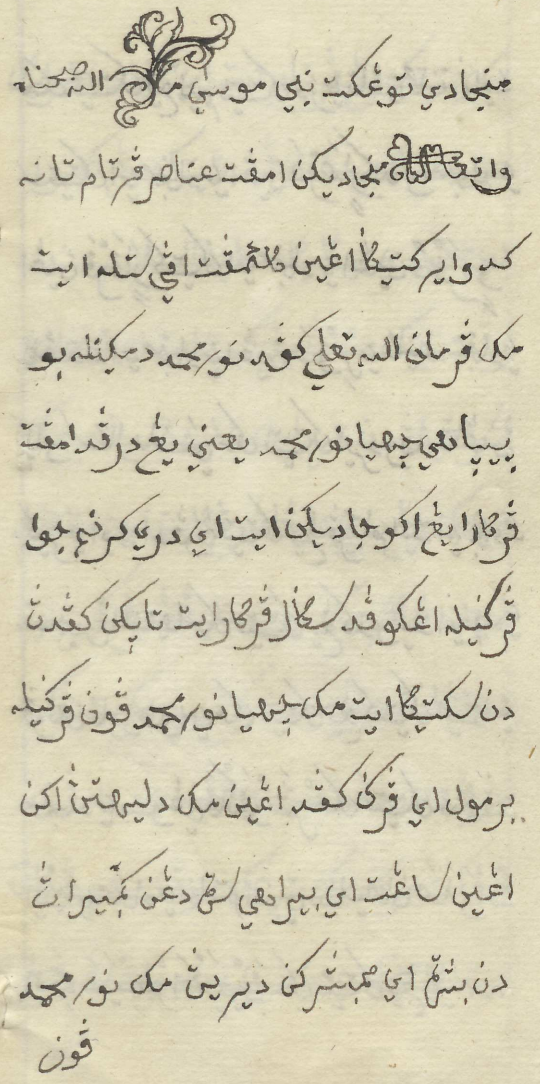 منجادي توڠكت نبي موسي مك الله صبحناه
واتعالى منجاديكن امڤت عناصر ڤرتام تانه
كدوا اير كتيݢ اڠين كأمڤت اڤي ستله ايت
مك فرمان الله تعالي كڤد نور محمد دمكينله بو
ڽيڽ هي چهيا نور محمد يعني يڠ درڤد امڤت
ڤركارا يڠ اكو جاديكن ايت اي دري كرن جوا
ڤرݢيله اڠكو ڤد سݢل ڤركارا ايت تاڽكن كڤدڽ
دن كتيݢ ايت مك چهيا نور محمد ڤون ڤرݢيله
برمول اي ڤرݢي كڤد اڠين مك دليهتڽ اكن
اڠين ساڠت اي بيراهي سرت دڠن تكبيراڽ
دن بسرڽ اي ممبسركن ديريڽ مك نور محمد
ڤون